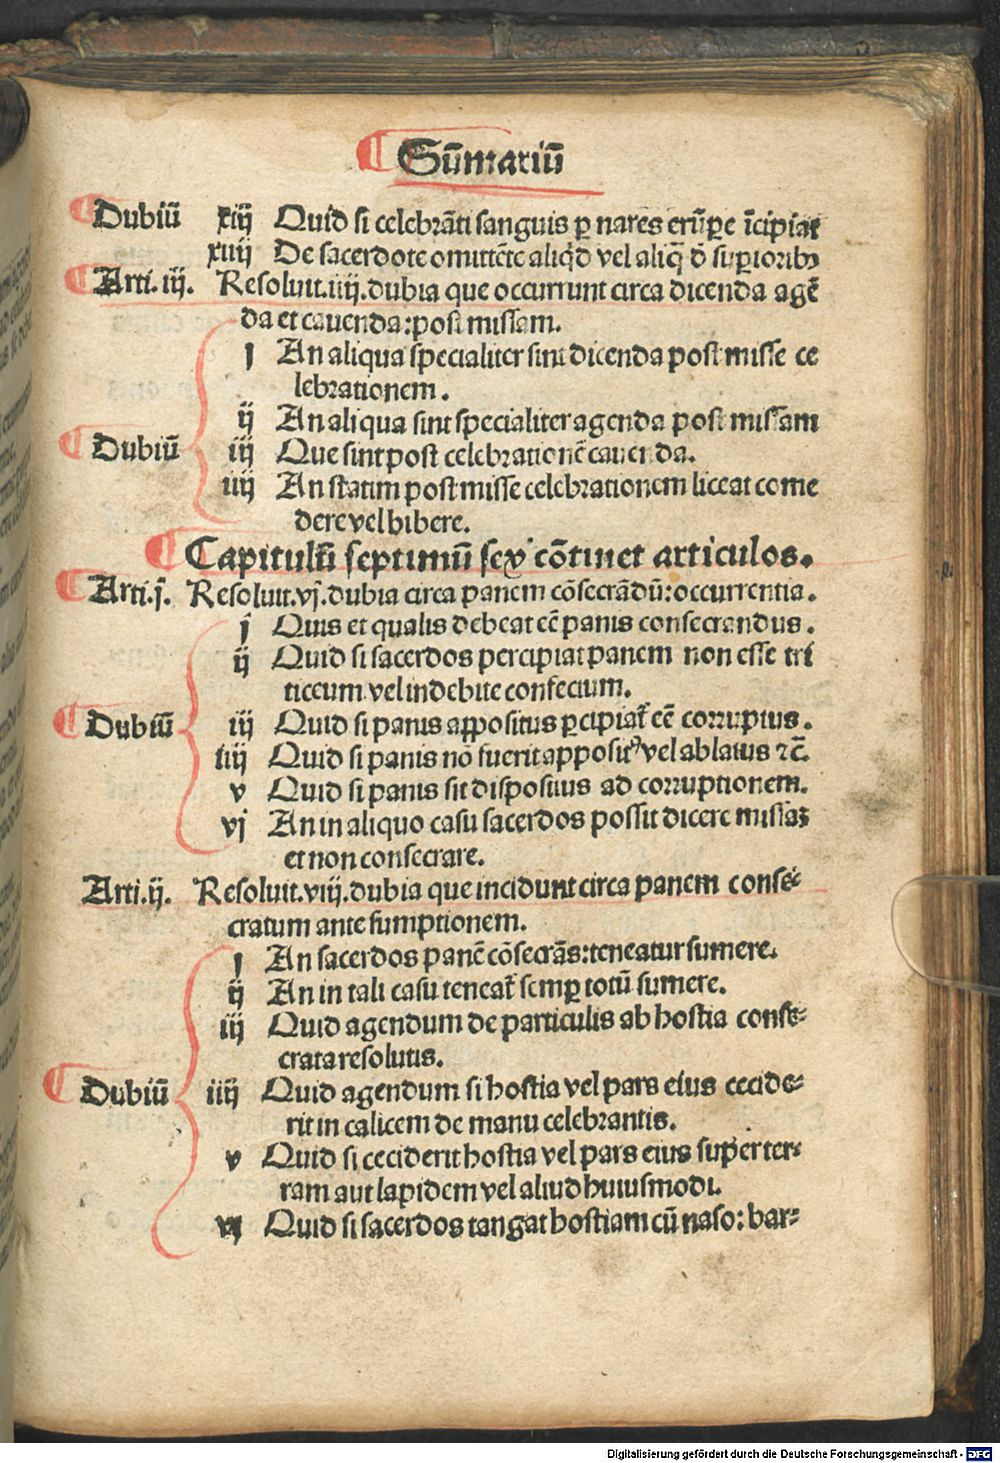 Sūmariū
Dubiū xiij Quid si celebrāti sanguis ꝑ nares erūꝑe īcipiat
xiiij De sacerdote omittēte aliqd vel aliq̄ d̄ suꝑioribꝰ
Arti. iij. Resoluit .iiij. dubia que occurrunt circa dicenda agē
da et cauenda: post missam.
j An aliqua specialiter sint dicenda post misse ce
lebrationem.
ij An aliqua sint specialiter agenda post missam
Dubiū iij Que sint post celebrationē cauenda.
iiij An statim post misse celebrationem liceat come
dere vel bibere.
Capitulū septimū sex cōtinet articulos.
Arti. j. Resoluit .vj. dubia circa panem cōsecrādū: occurrentia.
j Quis et qualis debeat eē panis consecrandus.
ij Quid si sacerdos percipiat panem non esse tri
ticeum vel indebite confectum.
Dubiū iij Quid si panis appositus ꝑcipiat᷑ eē corruptus.
iiij Quid si panis nō fuerit apposit⁹ vel ablatus ⁊c̄.
v Quid si panis sit dispositus ad corruptionem.
vj An in aliquo casu sacerdos possit dicere missaꝫ
et non consecrare.
Arti. ij. Resoluit .viij. dubia que incidunt circa panem conse⸗
cratum ante sumptionem.
j An sacerdos panē cōsecrās: teneatur sumere.
ij An in tali casu teneat᷑ semꝑ totū sumere.
iij Quid agendum de particulis ab hostia conse⸗
crata resolutis.
Dubiū iiij Quid agendum si hostia vel pars eius cecide⸗
rit in calicem de manu celebrantis.
v Quid si ceciderit hostia vel pars eius super ter⸗
ram aut lapidem vel aliud huiusmodi.
vj Quid si sacerdos tangat hostiam cū naso: bar⸗
Digitalisierung gefördert durch die Deutsche Forschungsgemeinschaft - DFG